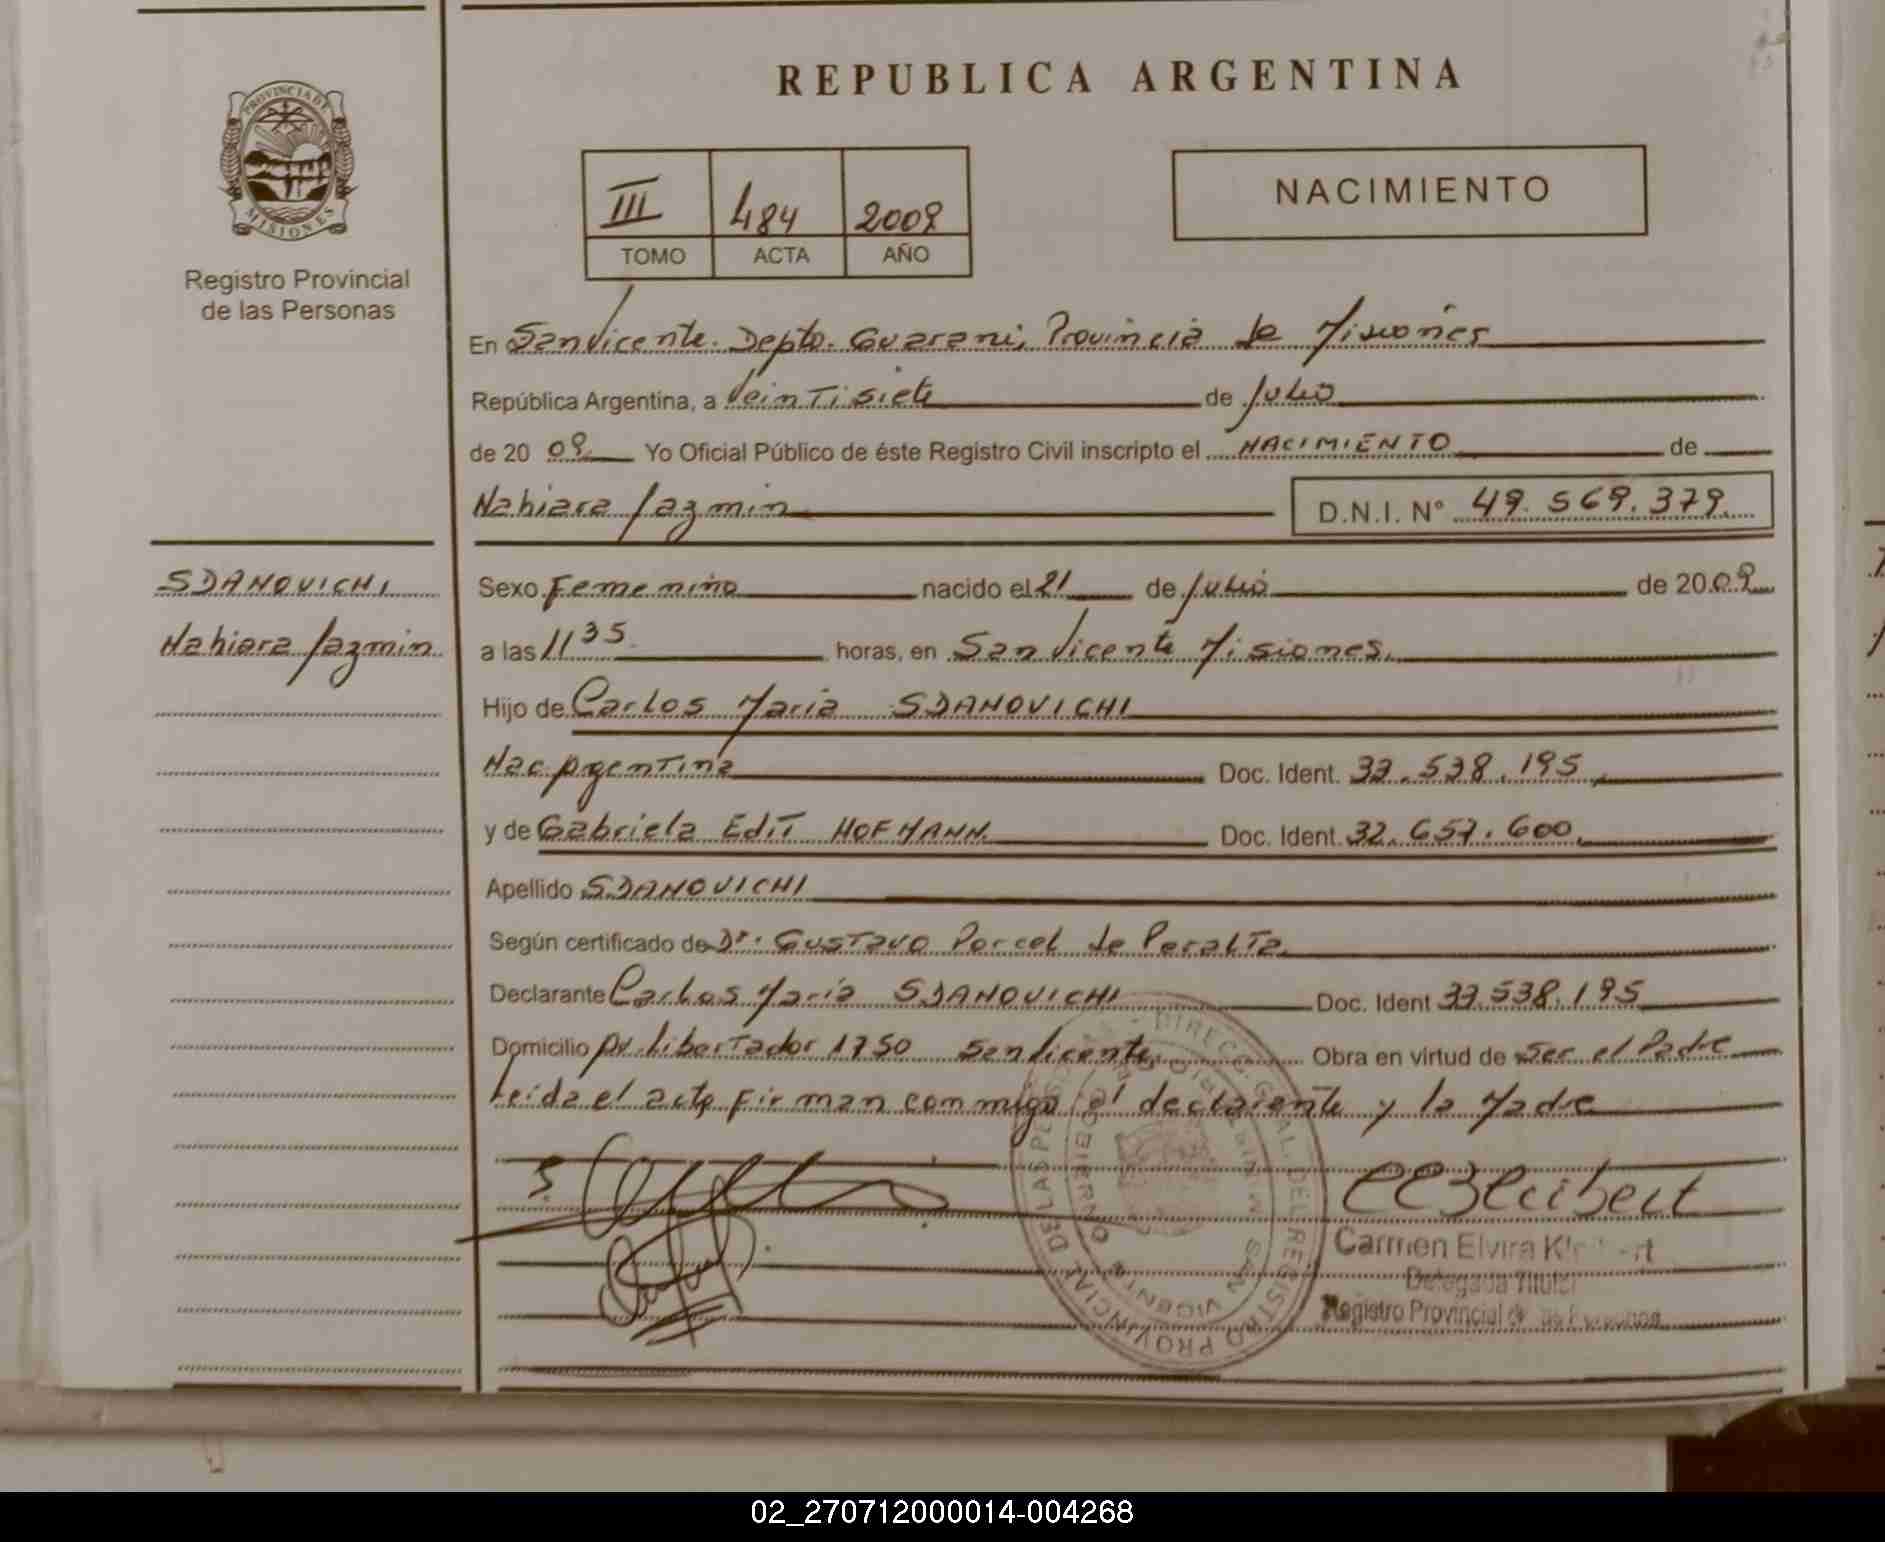 REPUBLICA ARGENTINA
PROVINCIA DE
MISIONES
Registro Provincial
de las Personas
NACIMIENTO
III 484 2009
TOMO ACTA AÑO
En San Vicente. Depto. Guarani, Provincia de Misiones
República Argentina, a Veintisiete de Julio
de 20 09 Yo Oficial Público de éste Registro Civil inscripto el NACIMIENTO de
Nahiara Jazmin D.N.I. N° 49.569.379.
SDANOVICHI
Nahiara Jazmin
Sexo Femenino nacido el 21 de Julio de 20 09
a las 11 35 horas, en San Vicente Misiones.
Hijo de Carlos Maria SDANOVICHI
Nac Argentina Doc. Ident. 33.538.195
y de Gabriela Edit HOFMANN Doc. Ident. 32.657.600
Apellido SDANOVICHI
Según certificado de Dr. Gustavo Porcel de Peralta
Declarante Carlos Maria SDANOVICHI Doc. Ident 33.538.195
Domicilio Av. Libertador 1750 San Vicente Obra en virtud de Ser el Padre
Leida el acta firman conmigo el declarante y la Madre
DIRECC. GRAL. DEL REGISTRO PROVINCIAL DE LAS PERSONAS
GOBIERNO
SAN VICENTE
Carmen Elvira
Delegada Titular
Registro Provincial de las Personas
02_270712000014-004268